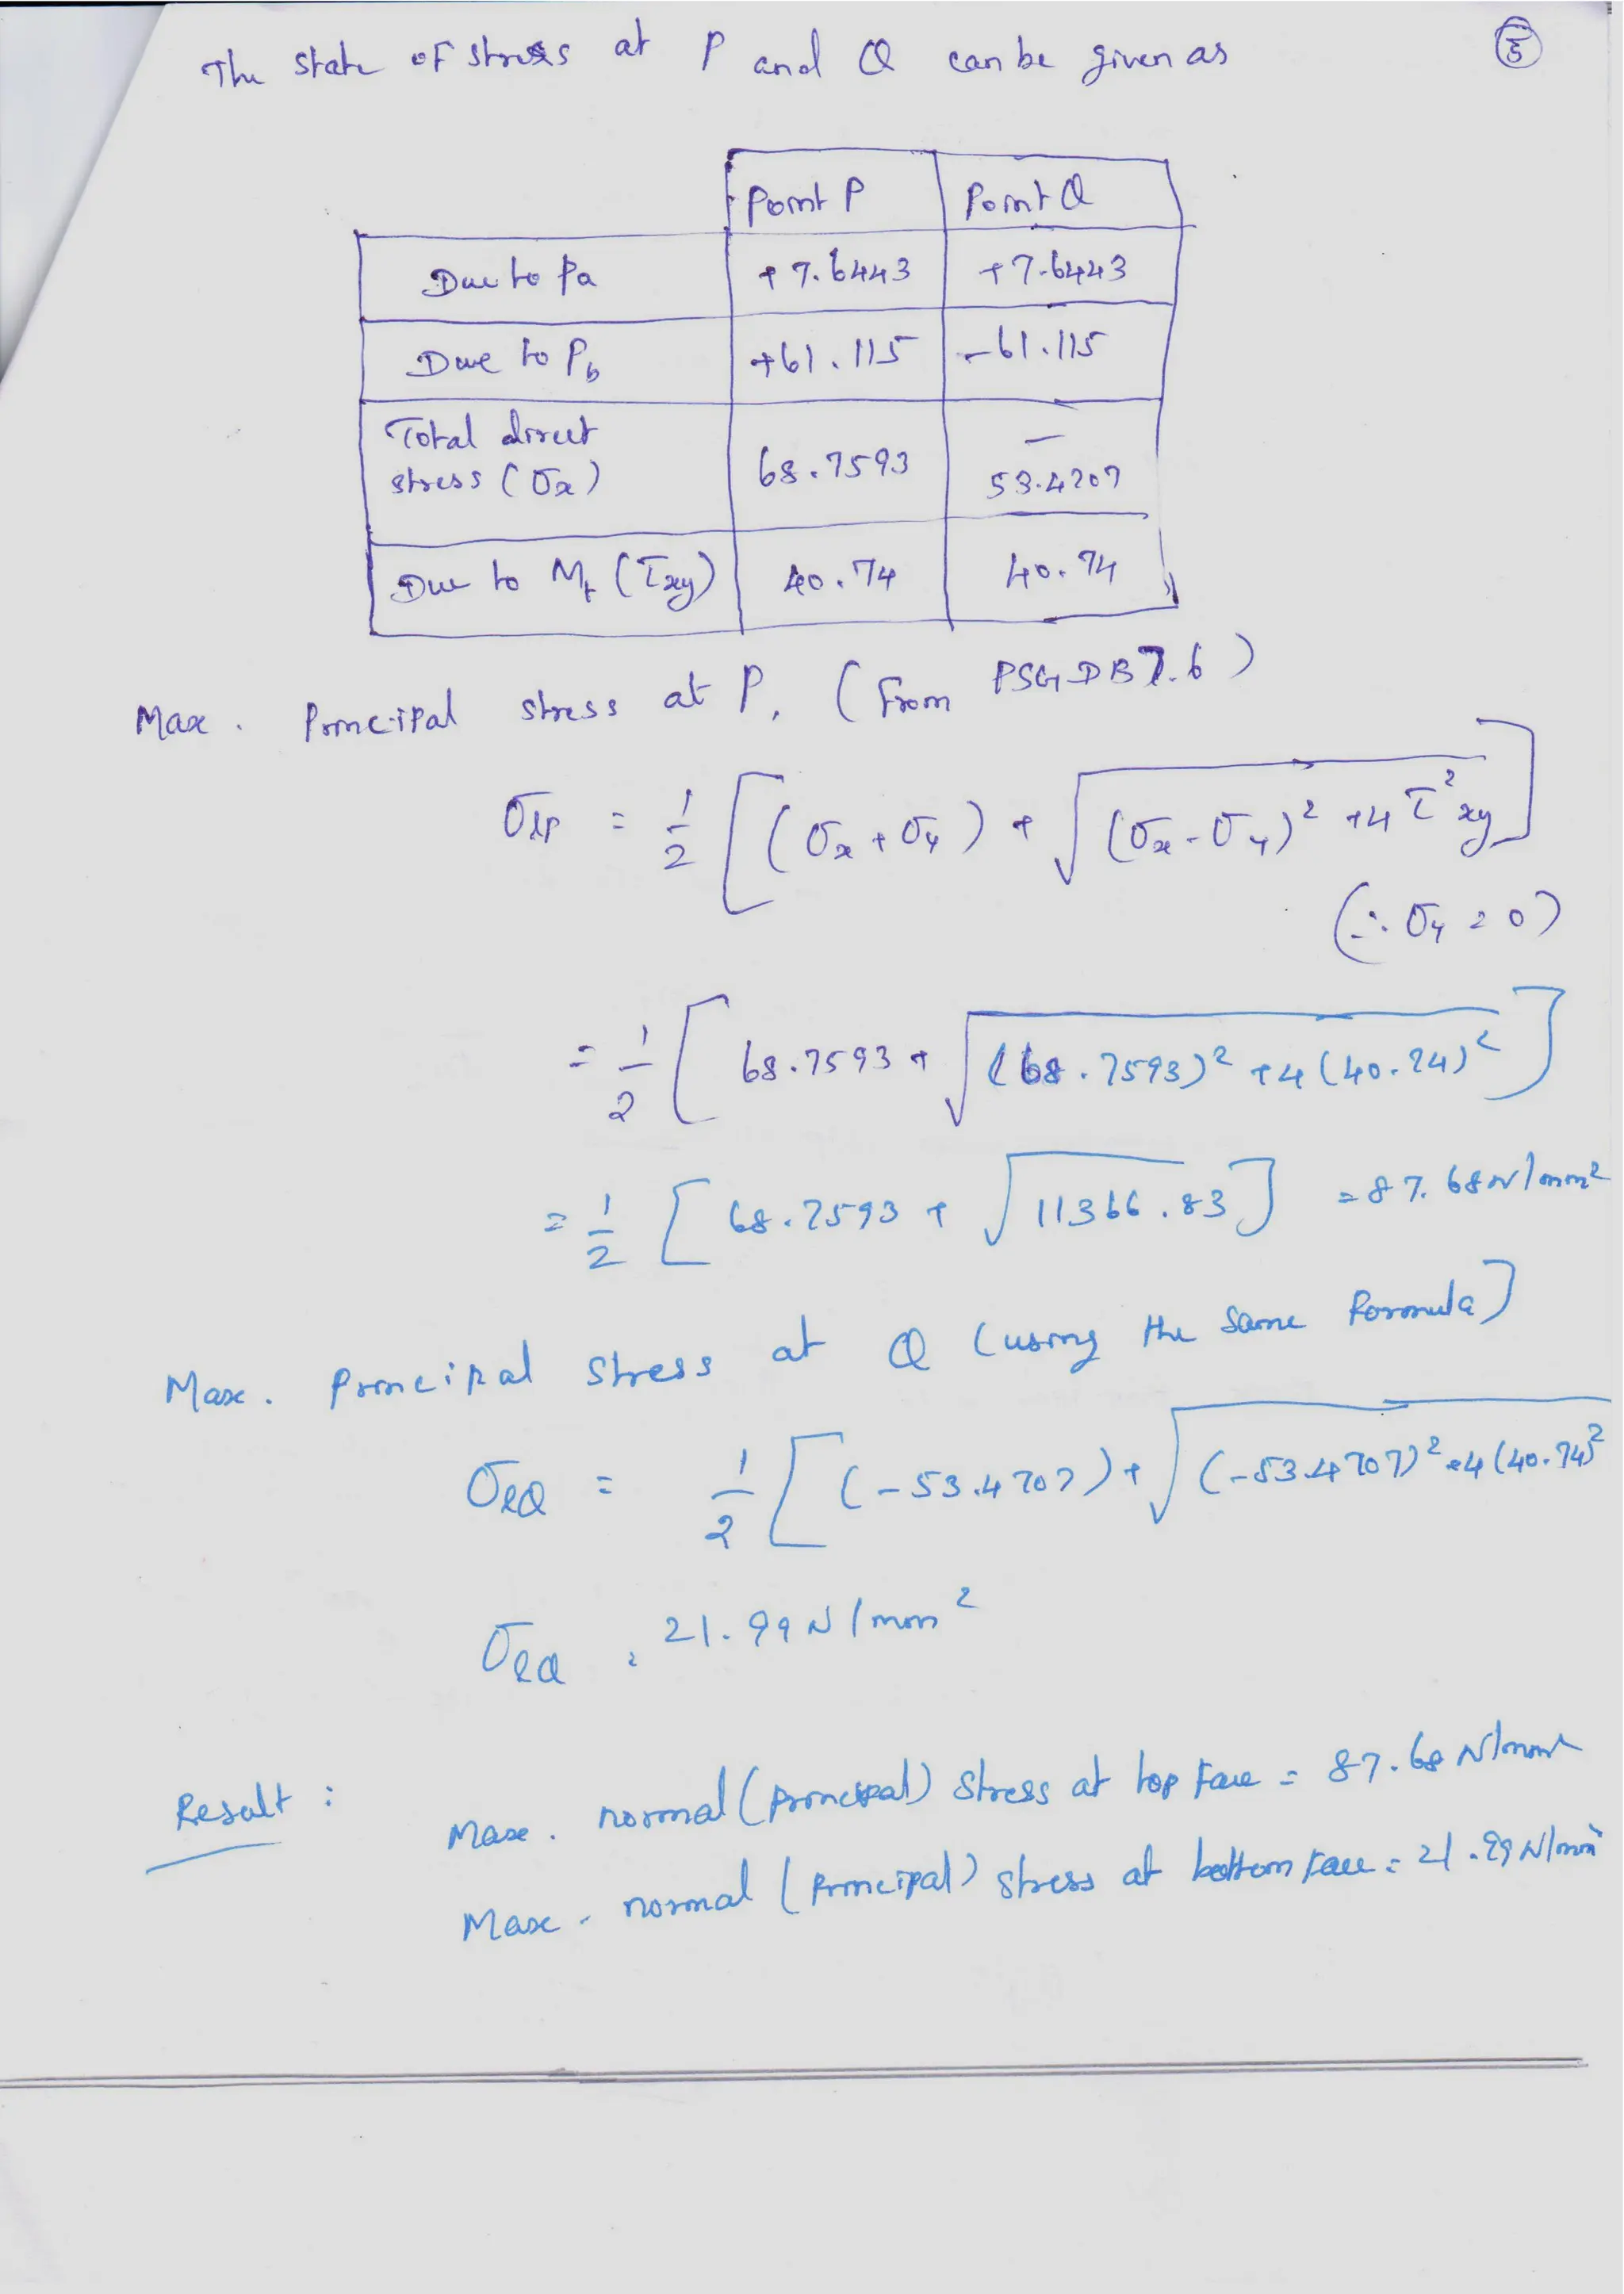 The state of stress at P and Q can be given as
5
Point P Point Q
Due to Pa +7.6443 +7.6443
Due to Pb +61.115 -61.115
Total direct
stress (σx) 68.7593 - 53.4707
Due to Mt (τxy) 40.74 40.74
Max. Principal stress at P, (from PSG DB 7.6)
σ1P = 1/2 [(σx + σy) + √(σx - σy)² + 4 τ²xy]
(∴ σy = 0)
= 1/2 [68.7593 + √(68.7593)² + 4 (40.74)²]
= 1/2 [68.7593 + √11366.83] = 87.68 N/mm²
Max. Principal stress at Q (using the same formula)
σ1Q = 1/2 [(-53.4707) + √(-53.4707)² + 4 (40.74)²
σ1Q = 21.99 N/mm²
Result :
Max. normal (principal) stress at top face = 87.68 N/mm²
Max. normal (principal) stress at bottom face = 21.99 N/mm²